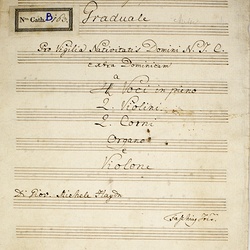 Graduale
Nro Cath. B/763.
Pro Vigilia Nativitatis Domini N: J: C:
extra Dominicam
a
4 Voci in pieno
2. Violini
2. Corni
Organo
e
Violone
Di Giov. Michele Haydn